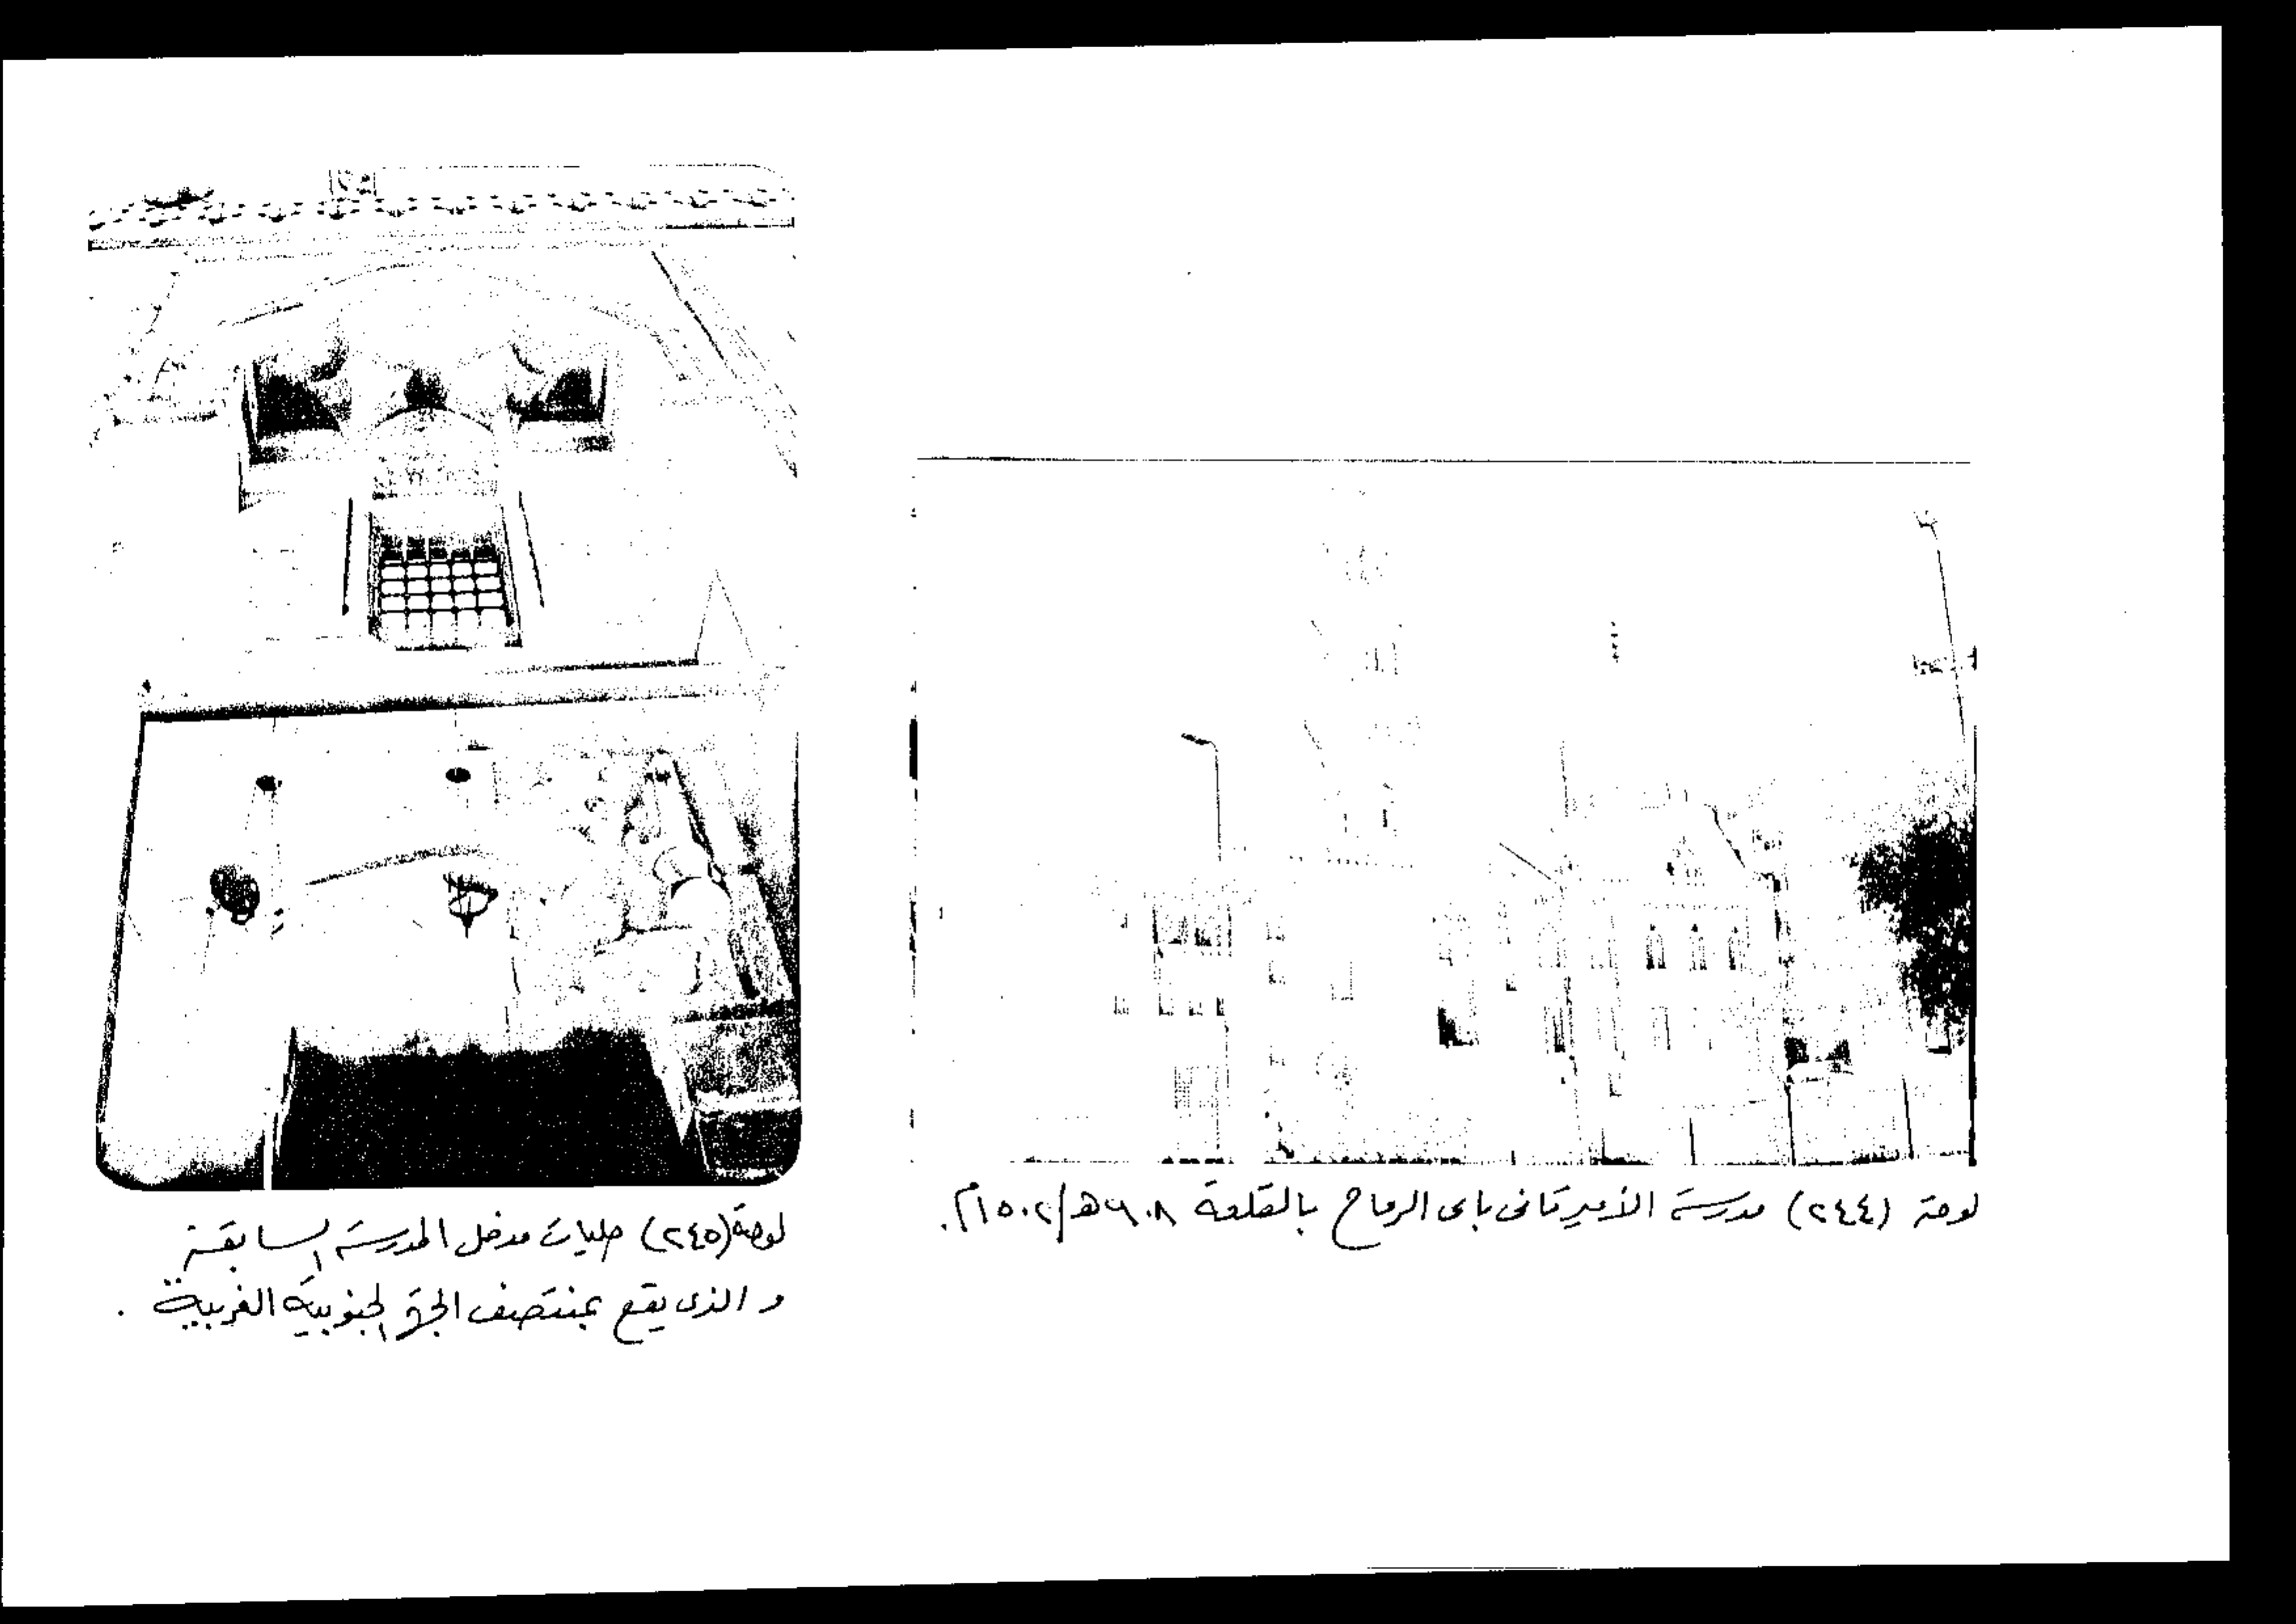 لوحة (٢٤٤) مدرسة الأمير قانى باى الرماح بالقلعة ٩٠٨هـ/١٥٠٢م.
لوحة (٢٤٥) حليات مدخل المدرسة السابقة
و الذى يقع بمنتصف الجهة الجنوبية الغربية .